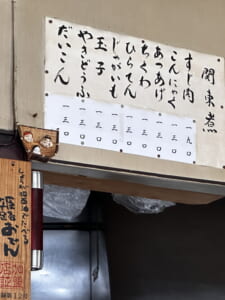 関東煮
すじ肉 一九〇
こんにゃく 一三〇
あつあげ 一三〇
ちくわ 一三〇
ひらてん 一三〇
じゃがいも 一三〇
玉子 一三〇
やきどうふ 一三〇
だいこん 一三〇
姫路おでん
加盟店証